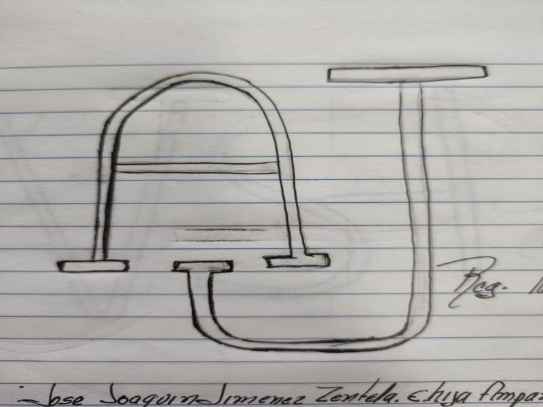 A J
Reg.
Jose Joaquin Jimenez Zentela. Chiya Ampa